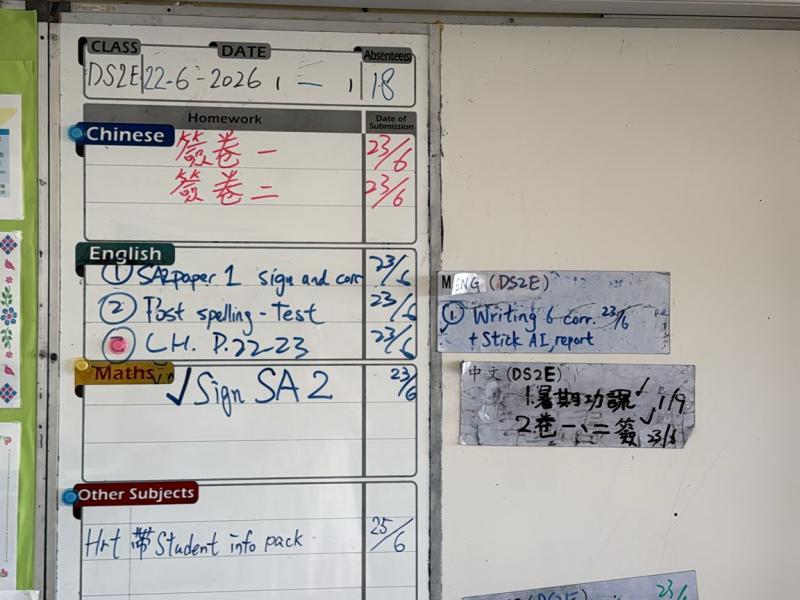 CLASS DATE Absentees
DS2E 22-6-2026 (一) 18
Homework Date of Submission
Chinese
簽卷一 23/6
簽卷二 23/6
English
① SA2 paper 1 sign and corr 23/6
② Post spelling - Test 23/6
C.H. P.22-23 23/6
Maths
✓ Sign SA 2 23/6
Other Subjects
Hrt 帶 Student info pack 25/6
ENG (DS2E)
① Writing 6 corr. 23/6
+ Stick AI, report
中文 (DS2E)
1.暑期功課 ✓ 1/9
2.卷一、二簽 ✓ 23/6
(DS2E) 23/6